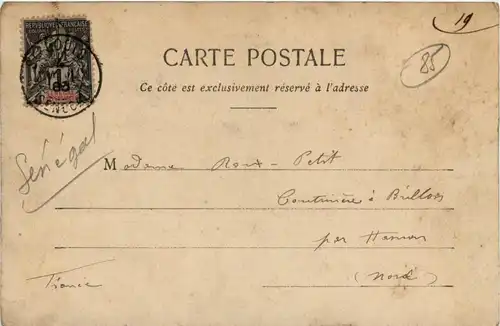 REPUBLIQUE FRANCAISE
19
85
CARTE POSTALE
Ce côté est exclusivement réservé à l'adresse
Sénégal
Madame Roux-Petit
Couturière à
par
(Nord)
France